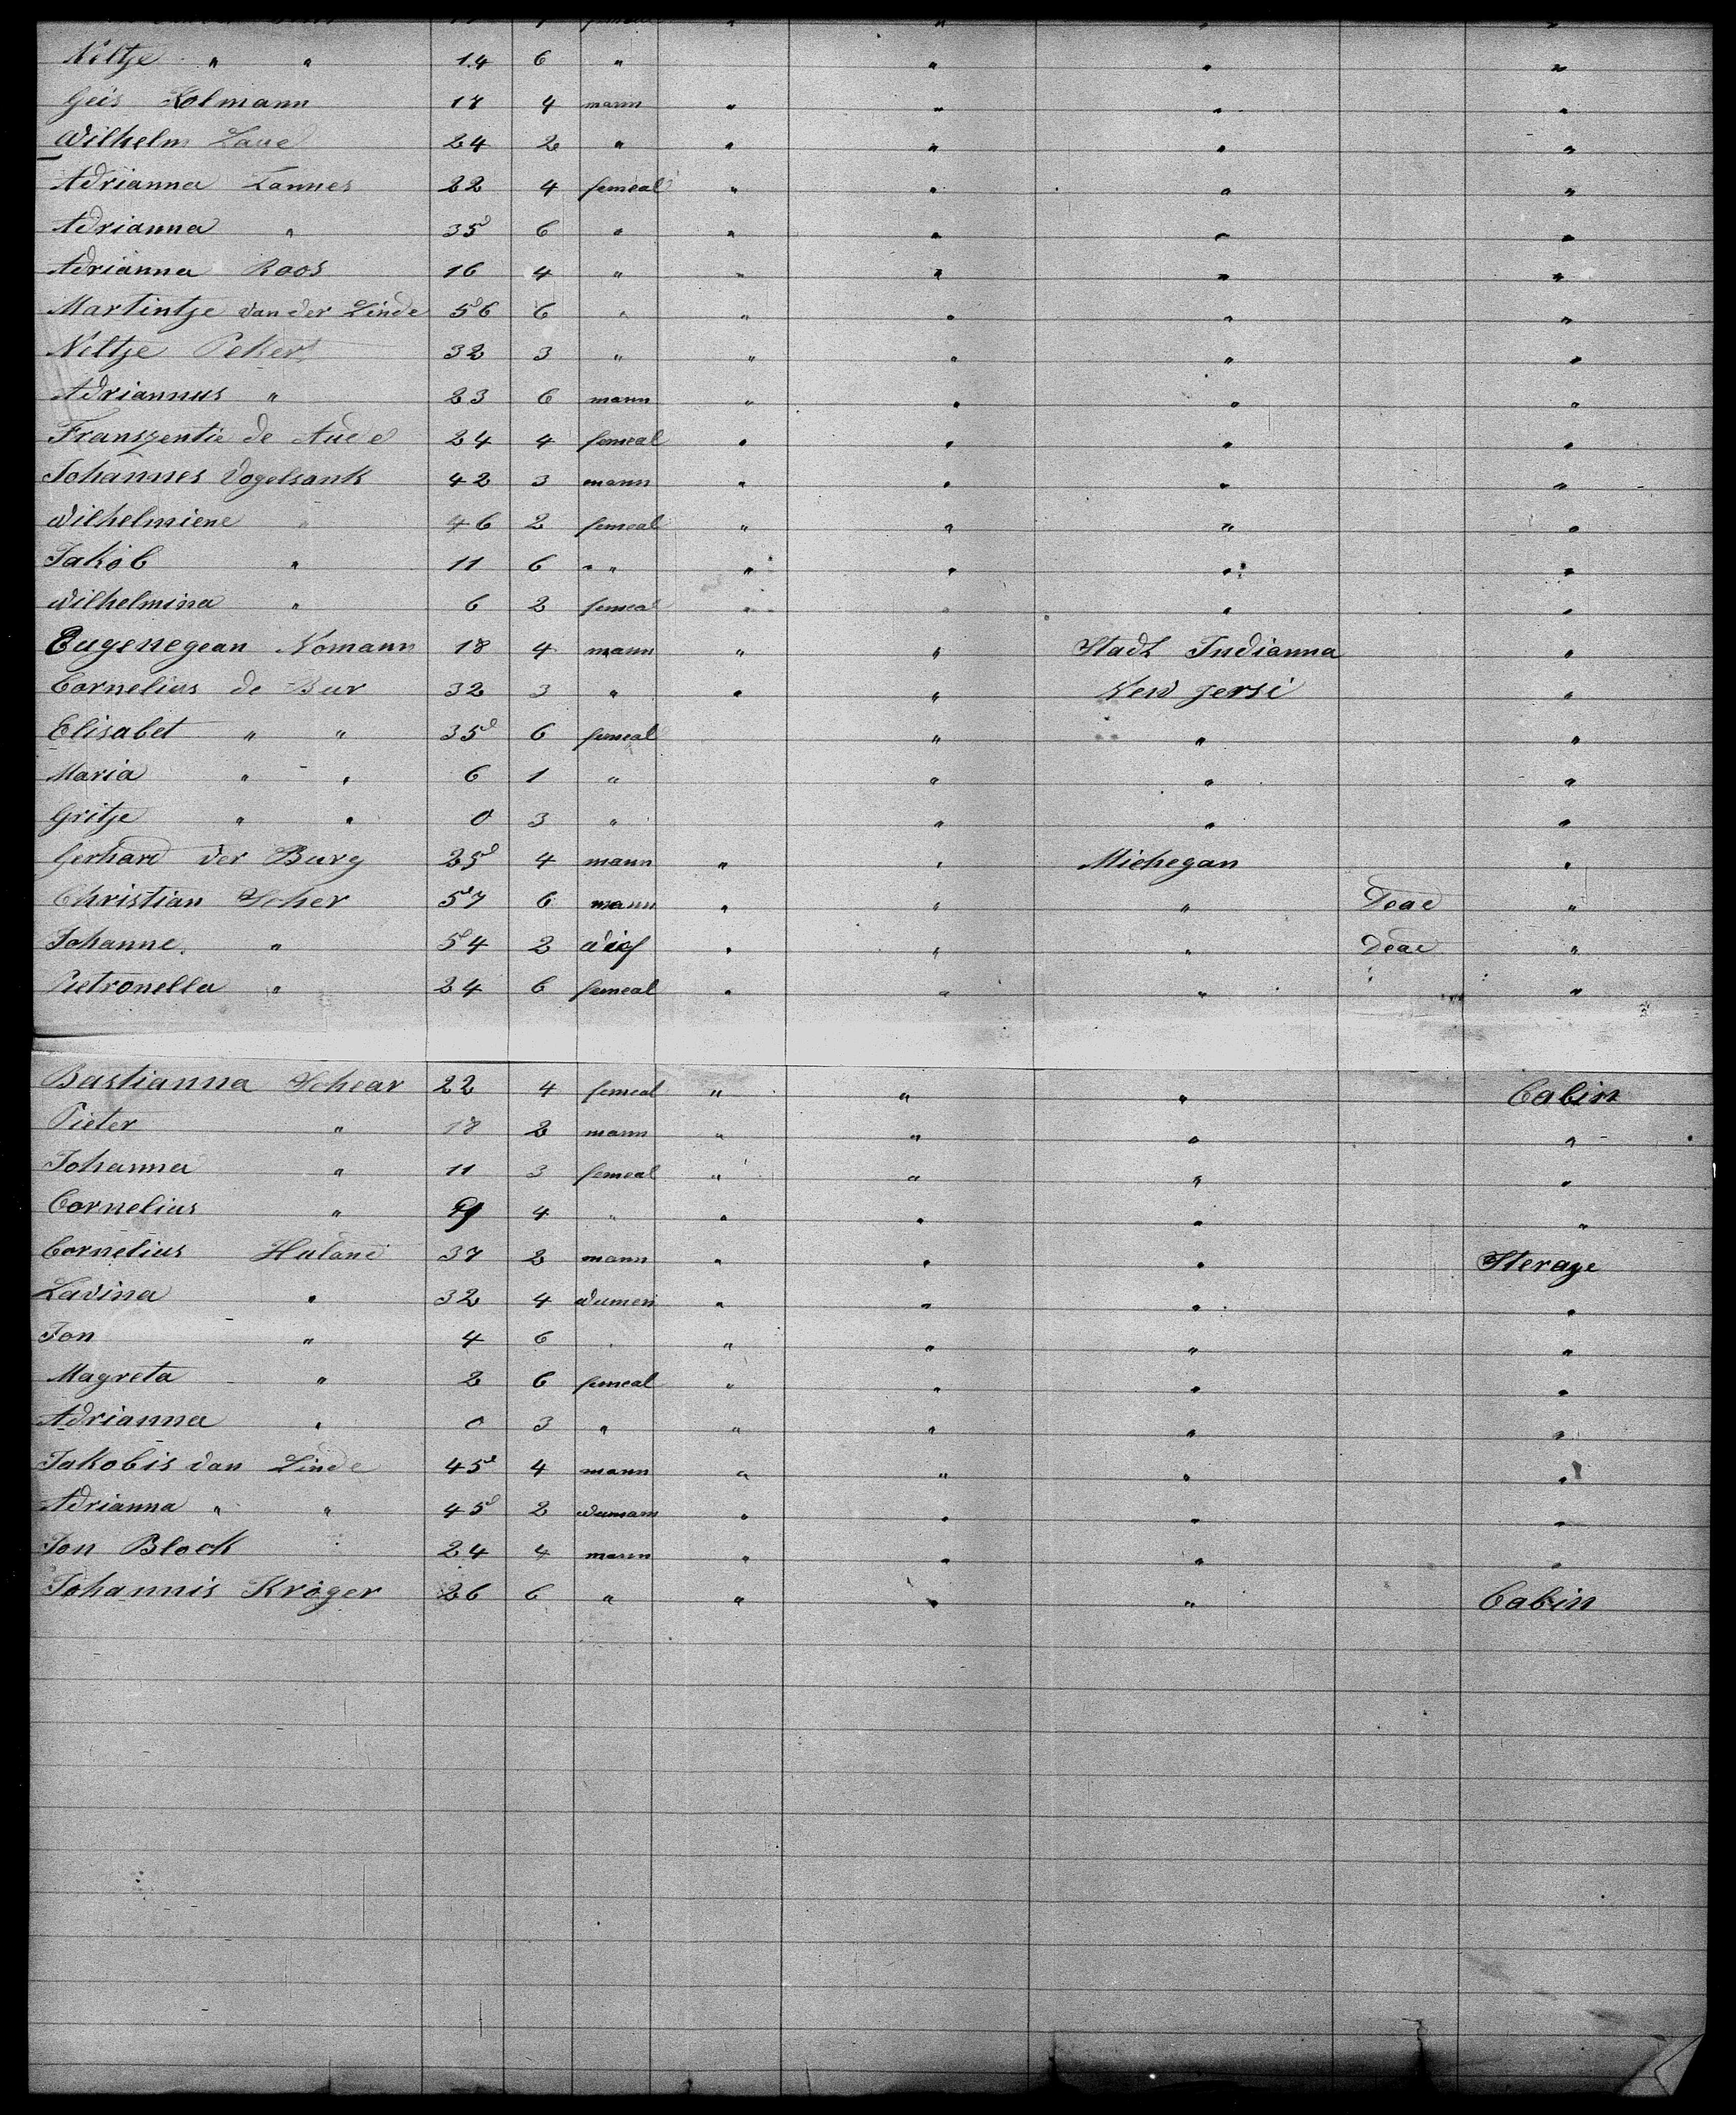 Neltje " " 14 6 " " " "
Geis Kolmann 17 4 mann " " " "
Wilhelm Laue 24 2 " " " " "
Adrianna Lannes 22 4 femeal " " " "
Adrianna " 35 6 " " " " "
Adrianna Roos 16 4 " " " " "
Martintje van der Linde 56 6 " " " " "
Neltje Peker 32 3 " " " " "
Adriannus " 23 6 mann " " " "
Franszentie de Aude 24 4 femeal " " " "
Johannes Vogelsank 42 3 mann " " " "
Wilhelmiene " 46 2 femeal " " " "
Jakob " 11 6 " " " " " "
Wilhelmina " 6 2 femeal " " " "
Eugenegean Nomann 18 4 mann " " Stadt Indianna "
Cornelius de Bur 32 3 " " " New Jersi "
Elisabet " " 35 6 femeal " " "
Maria " " 6 1 " " " "
Gritje " " 0 3 " " " "
Gerhard der Burg 25 4 mann " " Michegan "
Christian Scher 57 6 mann " " " Dead "
Johanne " 54 2 Wief " " " Dead "
Pietronella " 24 6 femeal " " " "
Bastianna Schear 22 4 femeal " " " Cabin
Pieter " 18 2 mann " " " "
Johanna " 11 3 femeal " " " "
Cornelius " 9 4 " " " " "
Cornelius Huland 37 2 mann " " " Sterage
Lavina " 32 4 Wumen " " " "
Jon " 4 6 " " " " "
Magreta " 2 6 femeal " " " "
Adrianna " 0 3 " " " " "
Jakobis van Linde 45 4 mann " " " "
Adrianna " " 45 2 Wumann " " " "
Jon Block 24 4 mann " " " "
Johannis Kröger 26 6 " " " " Cabin